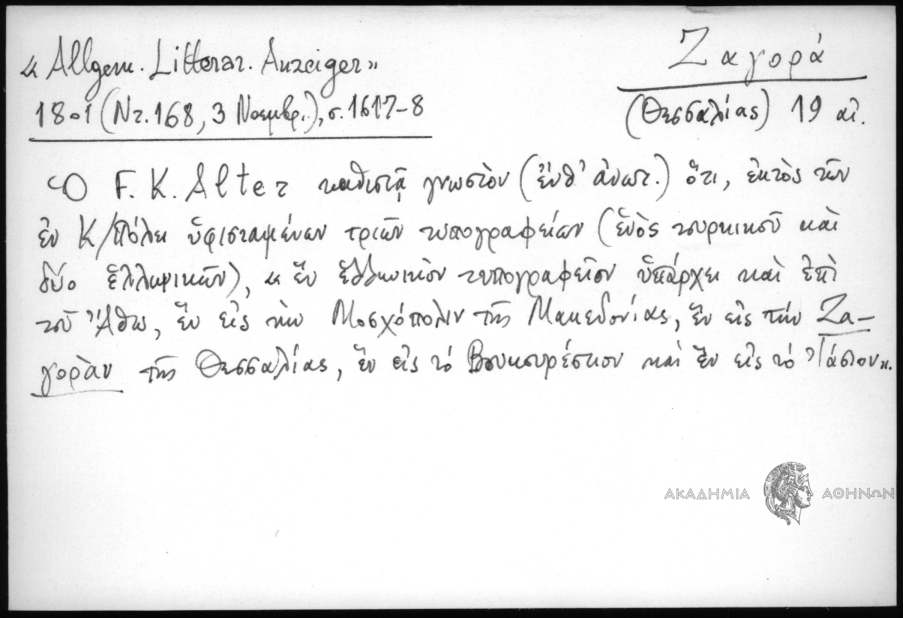 « Allgem. Litterar. Anzeiger»
1801 (Nr. 168, 3 Νοεμβρ.), σ. 1617-8
Ζαγορά
(Θεσσαλίας) 19 αἰ.
Ὁ F. K. Alter καθιστᾷ γνωστὸν (ἔνθ' ἀνωτ.) ὅτι, ἐκτὸς τῶν
ἐν Κ/Πόλει ὑφισταμένων τριῶν τυπογραφείων (ἑνὸς τουρκικοῦ καὶ
δύο ἑλληνικῶν), « ἓν ἑλληνικὸν τυπογραφεῖον ὑπάρχει καὶ ἐπὶ
τοῦ Ἄθω, ἓν εἰς τὴν Μοσχόπολιν τῆς Μακεδονίας, ἓν εἰς τὴν Ζα-
γορὰν τῆς Θεσσαλίας, ἓν εἰς τὸ Βουκουρέστιον καὶ ἓν εἰς τὸ Ἰάσιον».
ΑΚΑΔΗΜΙΑ ΑΘΗΝΩΝ